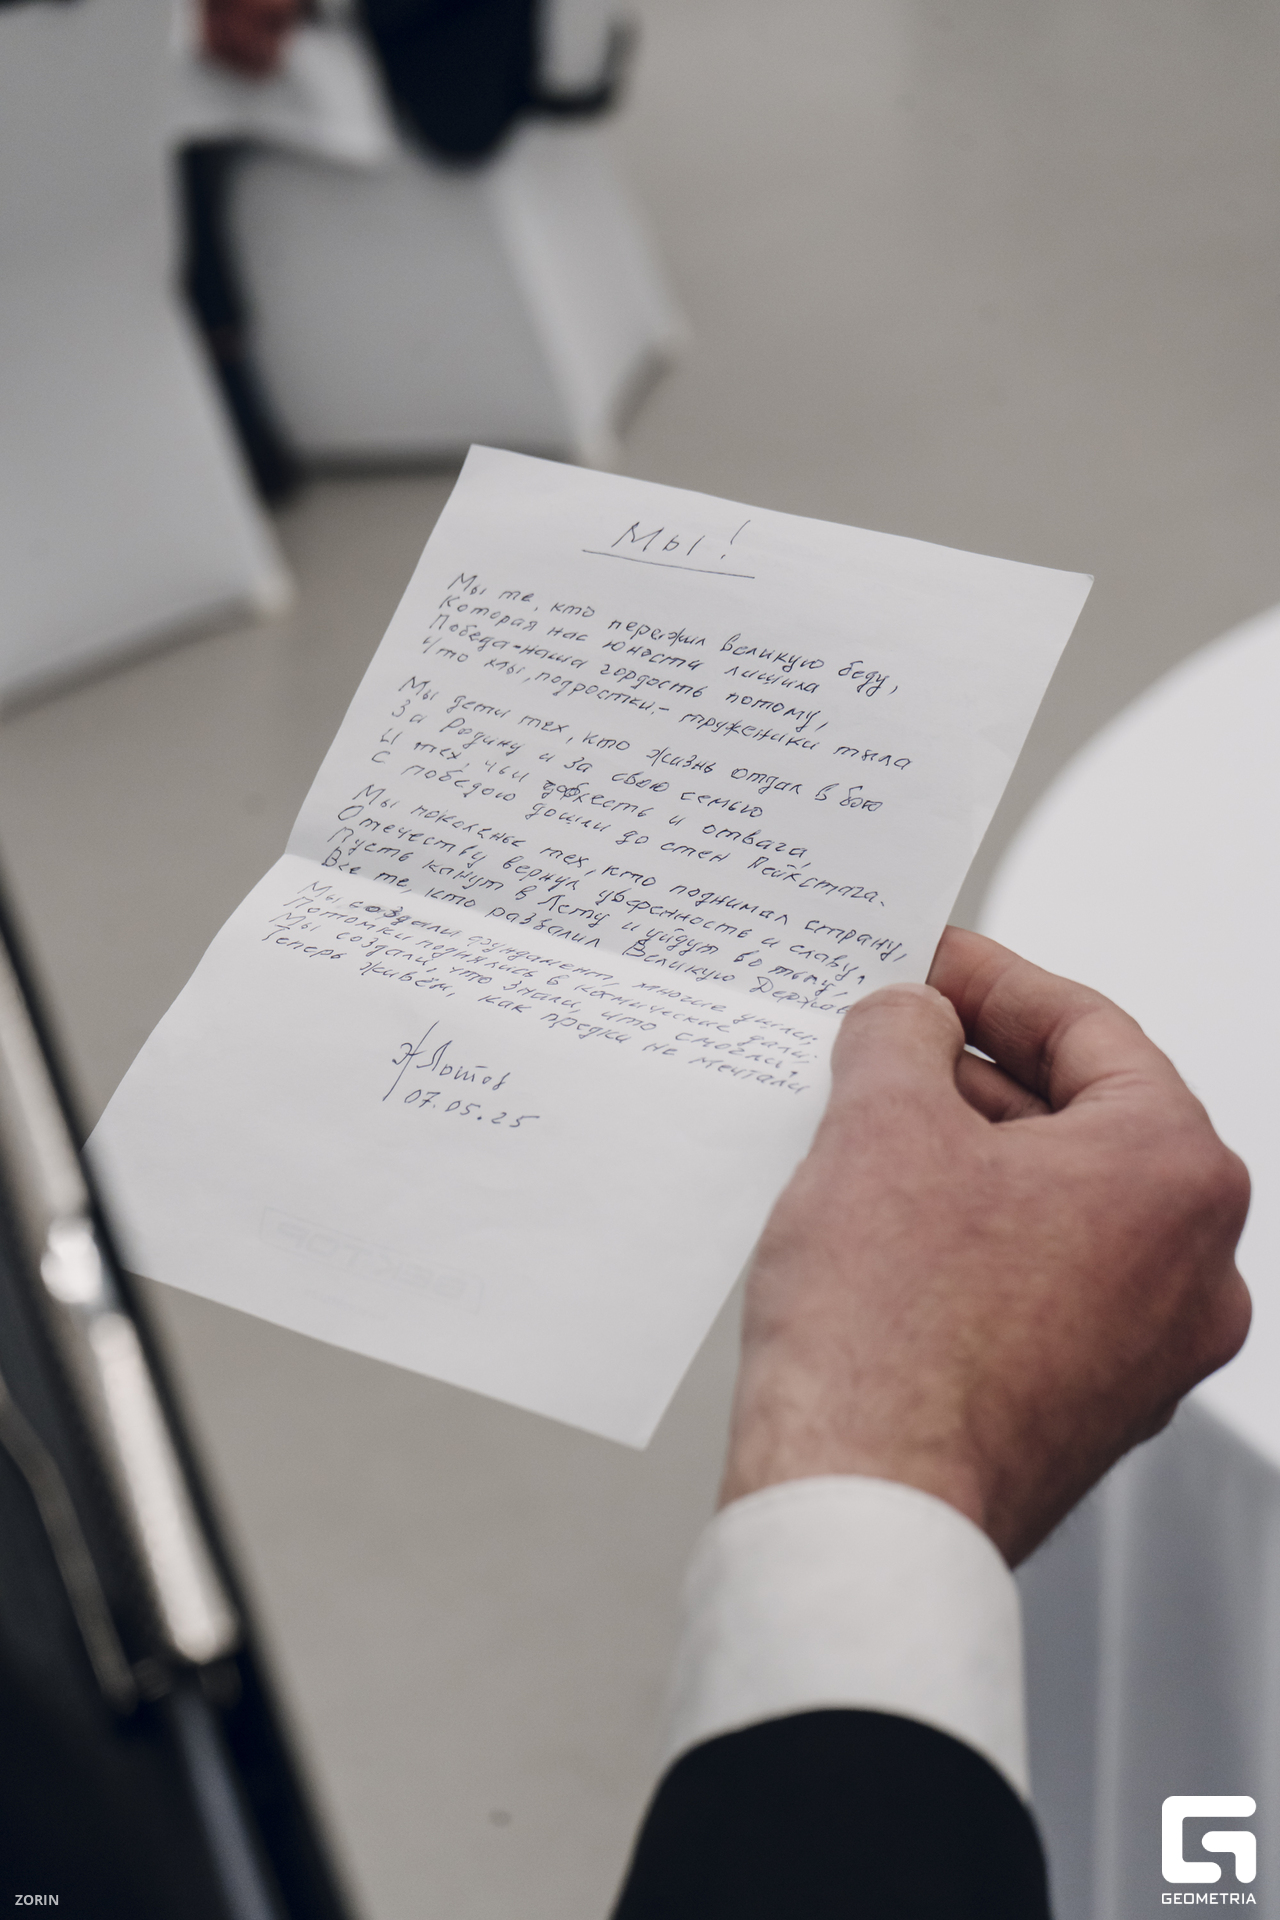 Мы!
Мы те, кто пережил великую беду,
Которая нас юности лишила
Победа-наша гордость потому,
Что мы, подростки,- труженики тыла
Мы дети тех, кто жизнь отдал в бою
За Родину и за свою семью
И тех, чьи доблесть и отвага,
С победою дошли до стен Рейхстага.
Мы поколенье тех, кто поднимал страну,
Отечеству вернул уверенность и славу.
Пусть канут в Лету и уйдут во тьму,
Все те, кто развалил Великую Державу
Мы создали фундамент, многие ушли;
Потомки поднялись в космические дали;
Мы создали, что знали, что смогли.
Теперь живём, как предки не мечтали
07.05.25
ВЕКТОР
ZORIN
GEOMETRIA